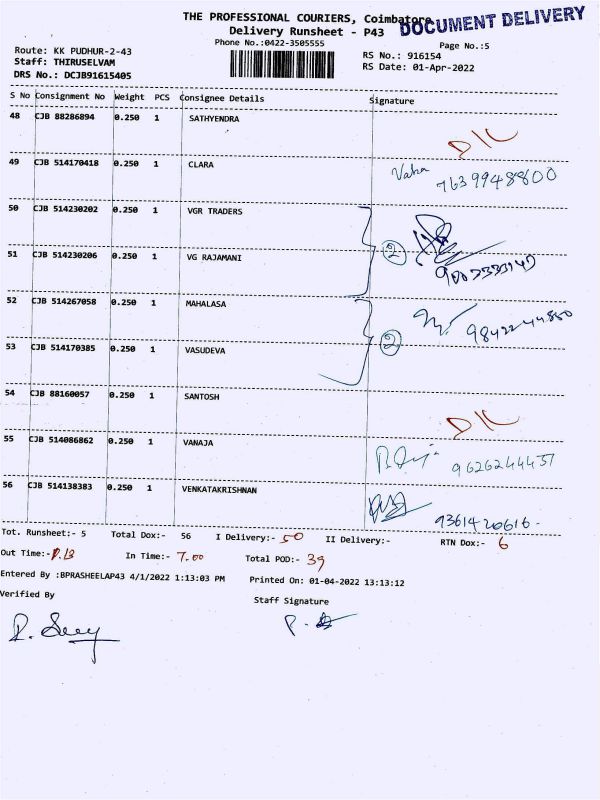 THE PROFESSIONAL COURIERS, Coimbatore
DOCUMENT DELIVERY
Delivery Runsheet - P43
Phone No.:0422-3505555
Page No.:5
Route: KK PUDHUR-2-43
RS No.: 916154
Staff: THIRUSELVAM
RS Date: 01-Apr-2022
DRS No.: DCJB91615405
S No Consignment No Weight PCS Consignee Details Signature
48 CJB 88286894 0.250 1 SATHYENDRA
D/L
49 CJB 514170418 0.250 1 CLARA
7639948800
50 CJB 514230202 0.250 1 VGR TRADERS
2
51 CJB 514230206 0.250 1 VG RAJAMANI
52 CJB 514267058 0.250 1 MAHALASA
9842244880
2
53 CJB 514170385 0.250 1 VASUDEVA
54 CJB 88160057 0.250 1 SANTOSH
D/L
55 CJB 514086862 0.250 1 VANAJA
9626244457
56 CJB 514138383 0.250 1 VENKATAKRISHNAN
9361420616-
Tot. Runsheet:- 5 Total Dox:- 56 I Delivery:- 50 II Delivery:- RTN Dox:- 6
Out Time:- In Time:- 7.00 Total POD:- 39
Entered By :BPRASHEELAP43 4/1/2022 1:13:03 PM Printed On: 01-04-2022 13:13:12
Verified By Staff Signature